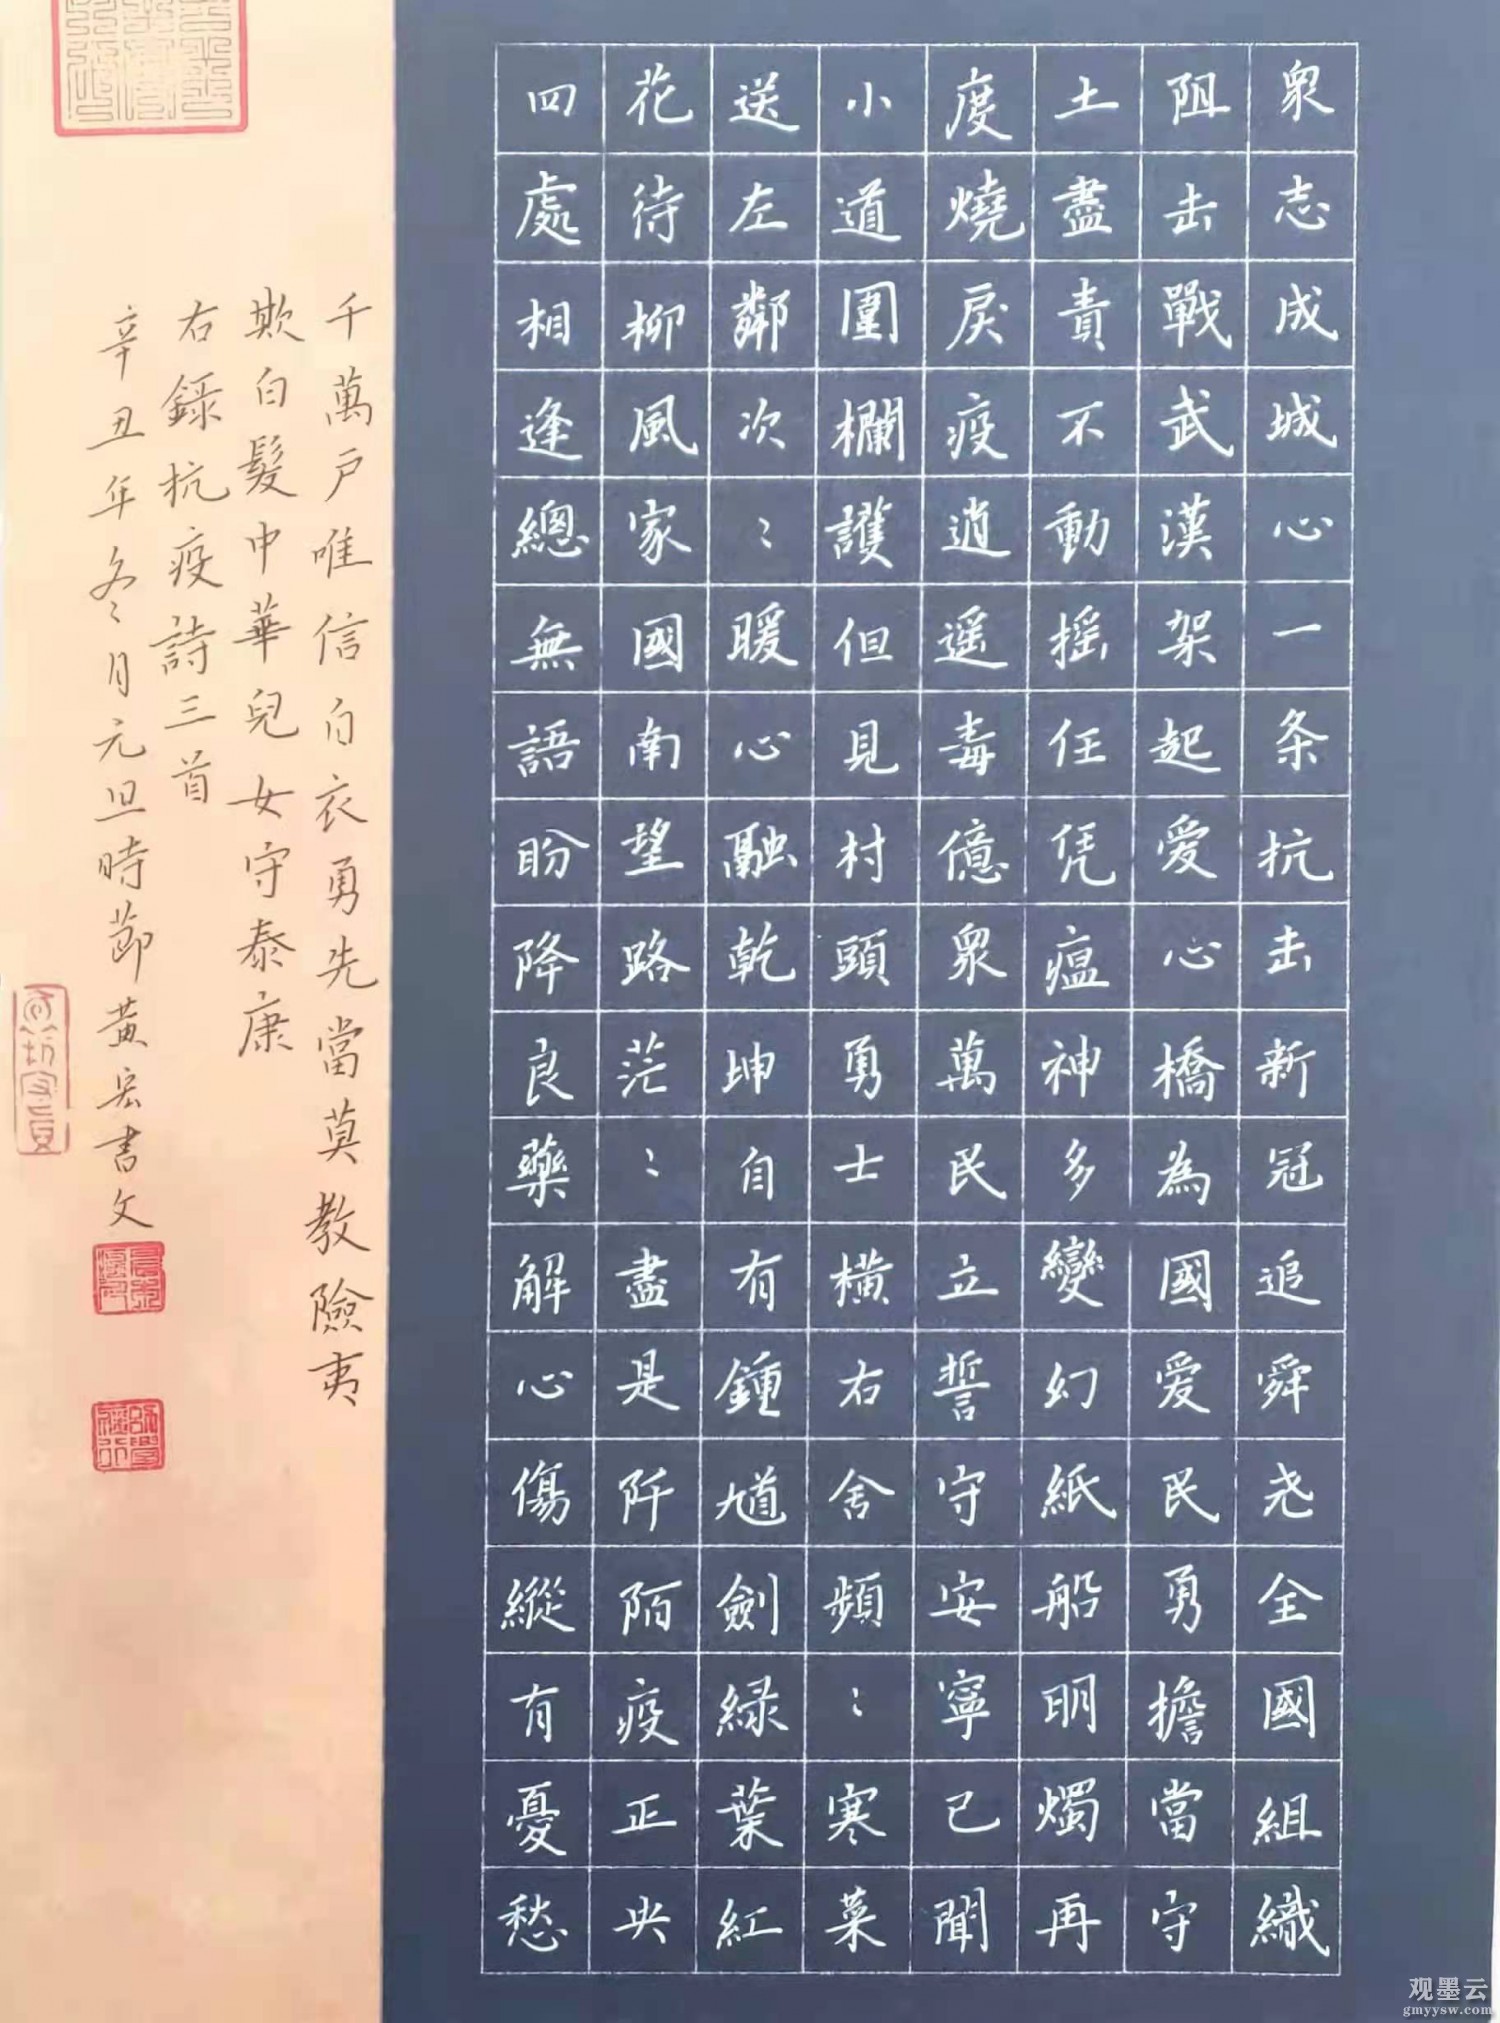 衆志成城心一条抗击新冠追舜尧全國組織
阻击戰武漢架起爱心橋為國爱民勇擔當守
土盡責不動摇任凭瘟神多變幻紙船明燭再
度燒戾疫逍遥毒億衆萬民立誓守安寧已聞
小道圍欄護但見村頭勇士橫右舍頻〻寒菜
送左鄰次〻暖心融乾坤自有鍾馗劍緑葉紅
花待柳風家國南望路茫〻盡是阡陌疫正央
四處相逢總無語盼降良藥解心傷縱有憂愁
千萬户唯信白衣勇先當莫教險夷
欺白髮中華兒女守泰康
右錄抗疫詩三首
辛丑年冬〻月元旦時節黄宏書文
观墨云
gmyysw.com